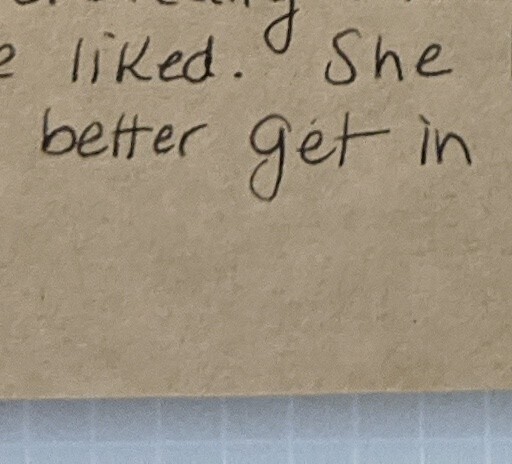 liked. She
better get in